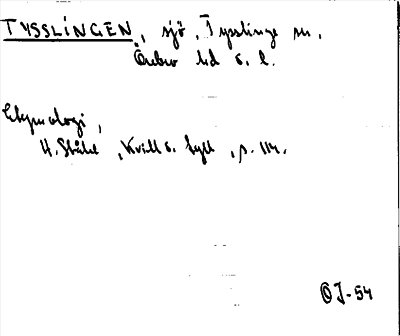 TYSSLINGEN, sjö, Tysslinge sn,
Örebro hd ö. l.
Etymologi,
H. Ståhl, Kvill o. bygd, s. 114.
OJ-54